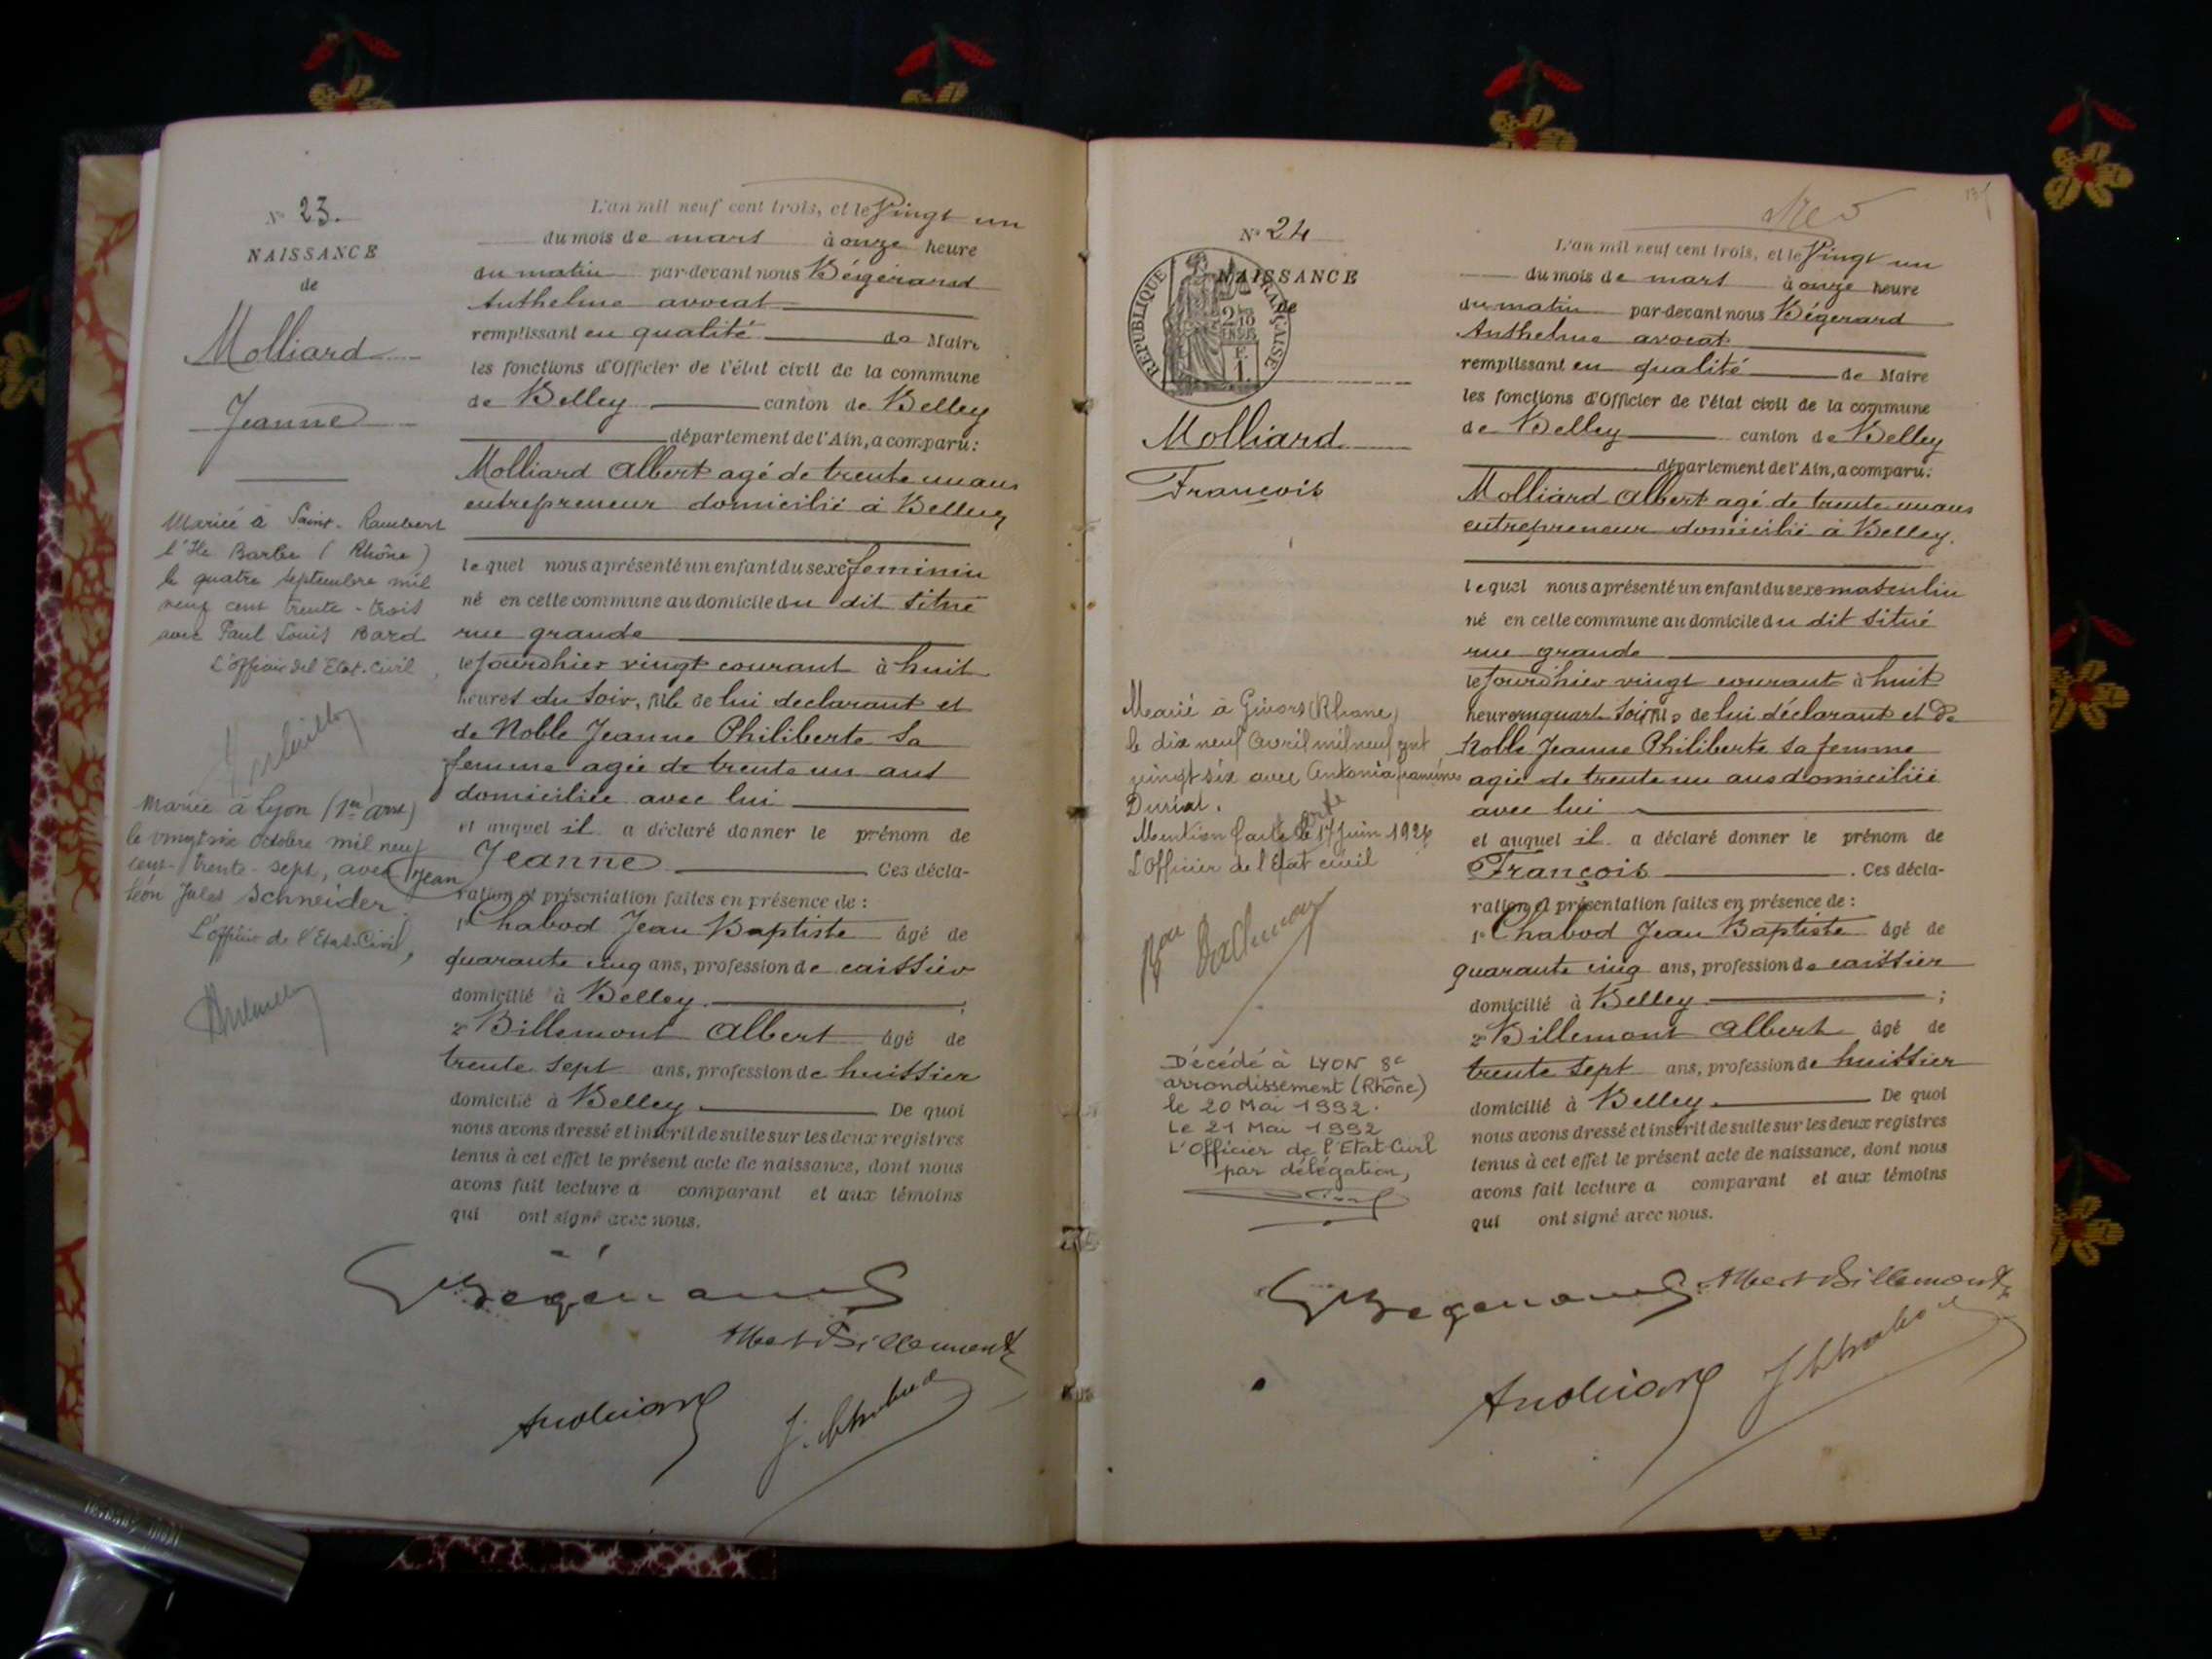 N° 23.
NAISSANCE
de
Molliard
Jeanne
Mariée à Saint-Rambert
l'Ile Barbe (Rhône)
le quatre Septembre mil
neuf cent trente-trois
avec Paul Louis Bard
L'officier de l'Etat-Civil,
Mariée à Lyon (1er arrt)
le vingt six Octobre mil neuf
cent-trente-sept, avec Jean
Léon Jules Schneider.
L'officier de l'Etat-Civil,
L'an mil neuf cent trois, et le Vingt un
du mois de mars à onze heure
du matin par-devant nous Bégerard
Anthelme avocat
remplissant en qualité de Maire
les fonctions d'Officier de l'état civil de la commune
de Belley canton de Belley
département de l'Ain, a comparu:
Molliard Albert agé de trente un ans
entrepreneur domicilié à Belley
lequel nous a présenté un enfant du sexe feminin
né en cette commune au domicile du dit situé
rue grande
le jourdhier vingt courant à huit
heures du soir, fille de lui declarant et
de Noble Jeanne Philiberte sa
femme agée de trente un ans
domiciliée avec lui
et auquel il a déclaré donner le prénom de
Jeanne Ces décla-
ration et présentation faites en présence de :
1° Chabod Jean Baptiste âgé de
quarante cinq ans, profession de caissier
domicilié à Belley. ;
2° Billemont Albert âgé de
trente sept ans, profession de huissier
domicilié à Belley. De quoi
nous avons dressé et inscrit de suite sur les deux registres
tenus à cet effet le présent acte de naissance, dont nous
avons fait lecture a comparant et aux témoins
qui ont signé avec nous.
Bégerard
Albert Billemont
AMolliard
J. Chabod
N° 24
NAISSANCE
de
REPUBLIQUE FRANÇAISE
Molliard
François
Marié à Givors (Rhône)
le dix neuf Avril mil neuf cent
vingt six avec Antonia
Duriat.
Mention faite le 17 Juin 1926
L'Officier de l'Etat civil
Décédé à LYON 8e
arrondissement (Rhône)
le 20 Mai 1992.
Le 21 Mai 1992
L'Officier de l'Etat Civil
par délégation,
L'an mil neuf cent trois, et le Vingt un
du mois de mars à onze heure
du matin par-devant nous Bégerard
Anthelme avocat
remplissant en qualité de Maire
les fonctions d'Officier de l'état civil de la commune
de Belley canton de Belley
département de l'Ain, a comparu:
Molliard Albert agé de trente un ans
entrepreneur domicilié à Belley.
lequel nous a présenté un enfant du sexe masculin
né en cette commune au domicile du dit situé
rue grande
le jourdhier vingt courant à huit
heure un quart soir, fils de lui déclarant et de
Noble Jeanne Philiberte sa femme
agée de trente un ans domiciliée
avec lui
et auquel il a déclaré donner le prénom de
François . Ces décla-
ration et présentation faites en présence de :
1° Chabod Jean Baptiste âgé de
quarante cinq ans, profession de caissier
domicilié à Belley ;
2° Billemont Albert âgé de
trente sept ans, profession de huissier
domicilié à Belley. De quoi
nous avons dressé et inscrit de suite sur les deux registres
tenus à cet effet le présent acte de naissance, dont nous
avons fait lecture a comparant et aux témoins
qui ont signé avec nous.
Bégerard
Albert Billemont
AMolliard
J Chabod